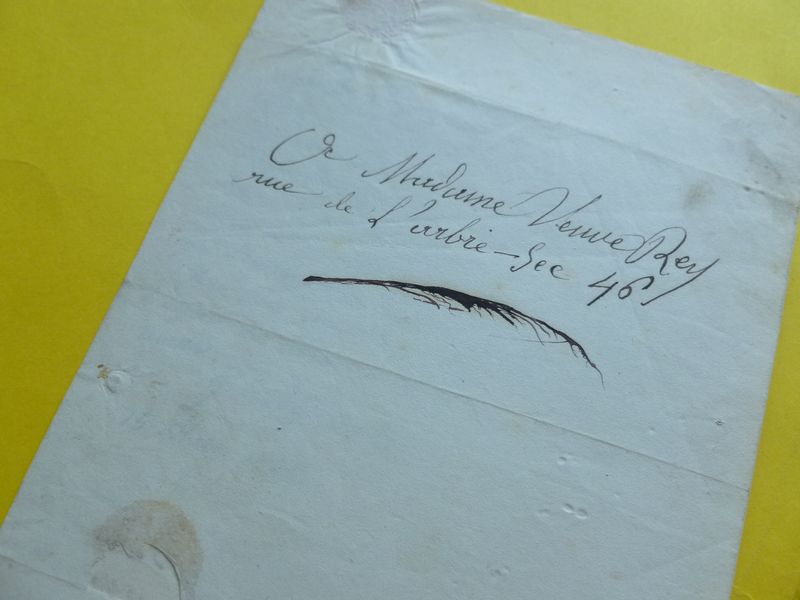 A Madame Veuve Rey
rue de L'arbre-Sec 46